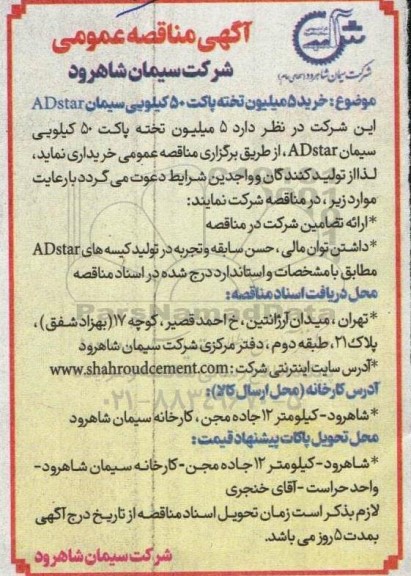 آگهی مناقصه عمومی
شرکت سیمان شاهرود
شرکت سیمان شاهرود (سهامی عام)
موضوع : خرید ۵ میلیون تخته پاکت ۵۰ کیلویی سیمان ADstar
این شرکت در نظر دارد ۵ میلیون تخته پاکت ۵۰ کیلویی
سیمان ADstar ، از طریق برگزاری مناقصه عمومی خریداری نماید،
لذا از تولید کنندگان و واجدین شرایط دعوت می گردد با رعایت
موارد زیر ، در مناقصه شرکت نمایند:
*ارائه تضامین شرکت در مناقصه
*داشتن توان مالی ، حسن سابقه و تجربه در تولید کیسه های ADstar
مطابق با مشخصات و استاندارد درج شده در اسناد مناقصه
محل دریافت اسناد مناقصه:
*تهران ، میدان آرژانتین ، خ احمد قصیر ، کوچه ۱۷ (بهزاد شفق) ،
پلاک ۲۱، طبقه دوم ، دفتر مرکزی شرکت سیمان شاهرود
*آدرس سایت اینترنتی شرکت : www.shahroudcement.com
آدرس کارخانه (محل ارسال کالا):
*شاهرود - کیلومتر ۱۲ جاده مجن ، کارخانه سیمان شاهرود
محل تحویل پاکات پیشنهاد قیمت :
*شاهرود - کیلومتر ۱۲ جاده مجن - کارخانه سیمان شاهرود -
واحد حراست - آقای خنجری
لازم بذکر است زمان تحویل اسناد مناقصه از تاریخ درج آگهی
بمدت ۵ روز می باشد.
شرکت سیمان شاهرود
ParsNamadData